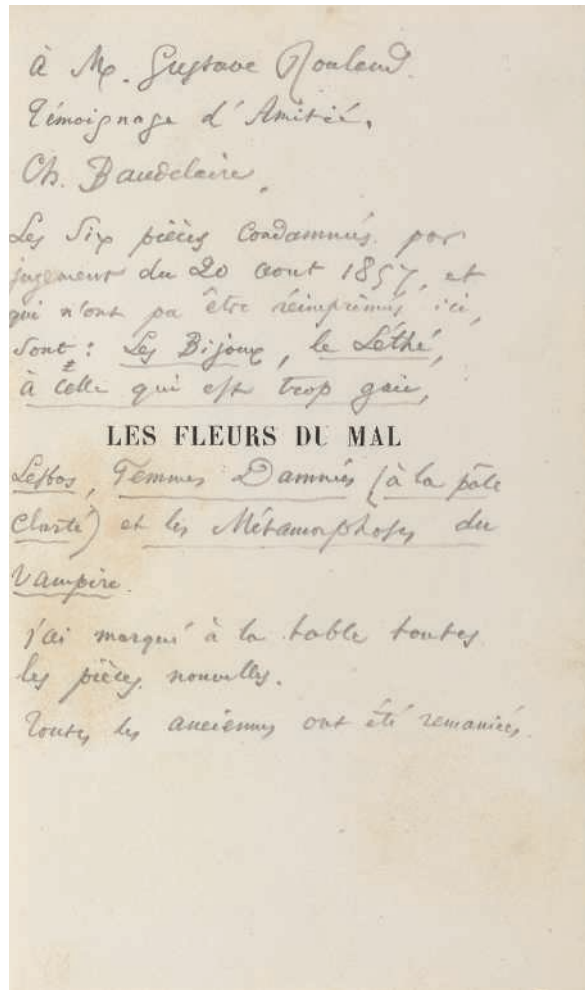 à M. Gustave Rouland.
Témoignage d'Amitié.
Ch. Baudelaire.
Les Six pièces Condamnées par
jugement du 20 aout 1857, et
qui n'ont pu être réimprimées ici,
sont : Les Bijoux, le Léthé,
à celle qui est trop gaie,
LES FLEURS DU MAL
Lesbos, Femmes Damnées (à la pâle
Clarté) et les Métamorphoses du
Vampire.
j'ai marqué à la table toutes
les pièces nouvelles.
Toutes les anciennes ont été remaniées.